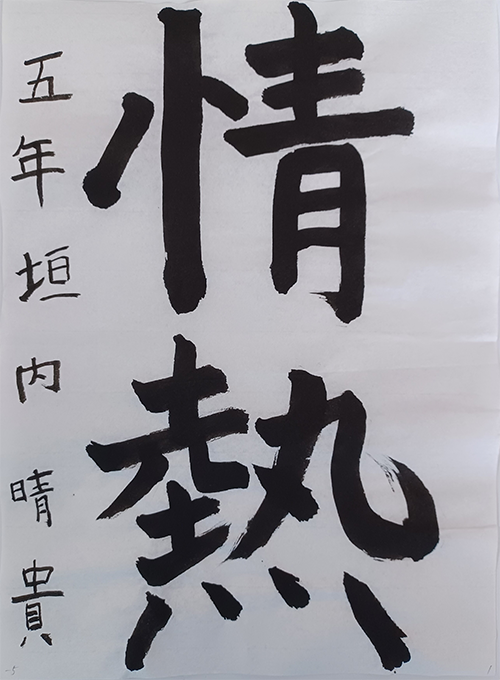 情熱
五年垣内晴貴